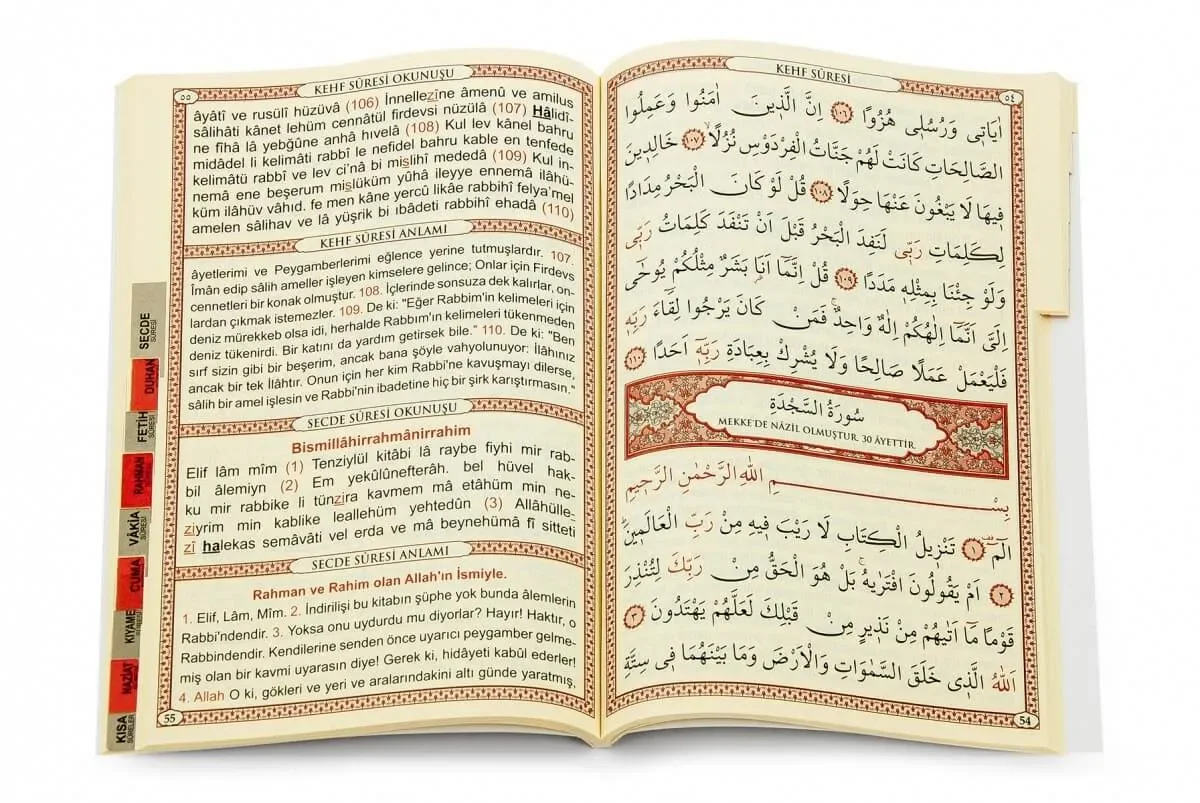 KEHF SÛRESİ
٥٤
اٰيَاتٖي وَرُسُلٖي هُزُوًا ﴿١٠٦﴾ اِنَّ الَّذٖينَ اٰمَنُوا وَعَمِلُوا
الصَّالِحَاتِ كَانَتْ لَهُمْ جَنَّاتُ الْفِرْدَوْسِ نُزُلًا ﴿١٠٧﴾ خَالِدٖينَ
فٖيهَا لَا يَبْغُونَ عَنْهَا حِوَلًا ﴿١٠٨﴾ قُلْ لَوْ كَانَ الْبَحْرُ مِدَادًا
لِكَلِمَاتِ رَبّٖى لَنَفِدَ الْبَحْرُ قَبْلَ اَنْ تَنْفَدَ كَلِمَاتُ رَبّٖى
وَلَوْ جِئْنَا بِمِثْلِهٖ مَدَدًا ﴿١٠٩﴾ قُلْ اِنَّمَٓا اَنَا۬ بَشَرٌ مِثْلُكُمْ يُوحٰٓى
اِلَىَّ اَنَّمَٓا اِلٰهُكُمْ اِلٰهٌ وَاحِدٌۚ فَمَنْ كَانَ يَرْجُوا لِقَٓاءَ رَبِّهٖ
فَلْيَعْمَلْ عَمَلًا صَالِحًا وَلَا يُشْرِكْ بِعِبَادَةِ رَبِّهٖٓ اَحَدًا ﴿١١٠﴾
سُورَةُ السَّجْدَةِ
MEKKE'DE NÂZİL OLMUŞTUR. 30 ÂYETTİR.
بِسْمِ اللّٰهِ الرَّحْمٰنِ الرَّحٖيمِ
الٓمٓ ﴿١﴾ تَنْزٖيلُ الْكِتَابِ لَا رَيْبَ فٖيهِ مِنْ رَبِّ الْعَالَمٖينَۜ
﴿٢﴾ اَمْ يَقُولُونَ افْتَرٰيهُۚ بَلْ هُوَ الْحَقُّ مِنْ رَبِّكَ لِتُنْذِرَ
قَوْمًا مَٓا اَتٰيهُمْ مِنْ نَذٖيرٍ مِنْ قَبْلِكَ لَعَلَّهُمْ يَهْتَدُونَ ﴿٣﴾
اَللّٰهُ الَّذٖى خَلَقَ السَّمٰوَاتِ وَالْاَرْضَ وَمَا بَيْنَهُمَا فٖى سِتَّةِ
54
KEHF SÛRESİ OKUNUŞU
٥٥
âyatî ve rusülî hüzüvâ (106) İnnellezîne âmenû ve amilus
sâlihâti kânet lehüm cennâtül firdevsi nüzülâ (107) Hâlidî-
ne fîhâ lâ yebğûne anhâ hıvelâ (108) Kul lev kânel bahru
midâdel li kelimâti rabbî le nefidel bahru kable en tenfede
kelimâtü rabbî ve lev ci'nâ bi mislihî mededâ (109) Kul in-
nemâ ene beşerum mislüküm yûhâ ileyye ennemâ ilâhü-
küm ilâhüv vâhıd. fe men kâne yercû likâe rabbihî felya'mel
amelen sâlihav ve lâ yüşrik bi ıbâdeti rabbihî ehadâ (110)
KEHF SÛRESİ ANLAMI
âyetlerimi ve Peygamberlerimi eğlence yerine tutmuşlardır. 107.
Îmân edip sâlih ameller işleyen kimselere gelince; Onlar için Firdevs
cennetleri bir konak olmuştur. 108. İçlerinde sonsuza dek kalırlar, on-
lardan çıkmak istemezler. 109. De ki: "Eğer Rabbim'in kelimeleri için
deniz mürekkeb olsa idi, herhalde Rabbım'ın kelimeleri tükenmeden
deniz tükenirdi. Bir katını da yardım getirsek bile." 110. De ki: "Ben
sırf sizin gibi bir beşerim, ancak bana şöyle vahyolunuyor: İlâhınız
ancak bir tek İlâhtır. Onun için her kim Rabbi'ne kavuşmayı dilerse,
sâlih bir amel işlesin ve Rabbi'nin ibadetine hiç bir şirk karıştırmasın."
SECDE SÛRESİ OKUNUŞU
Bismillâhirrahmânirrahim
Elif lâm mîm (1) Tenziylül kitâbi lâ raybe fiyhi mir rab-
bil âlemiyn (2) Em yekûlûnefterâh. bel hüvel hak-
ku mir rabbike li tünzira kavmem mâ etâhüm min ne-
ziyrim min kablike leallehüm yehtedûn (3) Allâhülle-
zî halekas semâvâti vel erda ve mâ beynehümâ fî sitteti
SECDE SÛRESİ ANLAMI
Rahman ve Rahim olan Allah'ın İsmiyle.
1. Elif, Lâm, Mîm. 2. İndirilişi bu kitabın şüphe yok bunda âlemlerin
Rabbi'ndendir. 3. Yoksa onu uydurdu mu diyorlar? Hayır! Haktır, o
Rabbindendir. Kendilerine senden önce uyarıcı peygamber gelme-
miş olan bir kavmi uyarasın diye! Gerek ki, hidâyeti kabûl ederler!
4. Allah O ki, gökleri ve yeri ve aralarındakini altı günde yaratmış,
55
SECDE
SÛRESİ
DUHAN
FETİH
SÛRESİ
RAHMAN
VÂKIA
SÛRESİ
CUMA
KIYAME
NAZİAT
KISA
SÛRELER